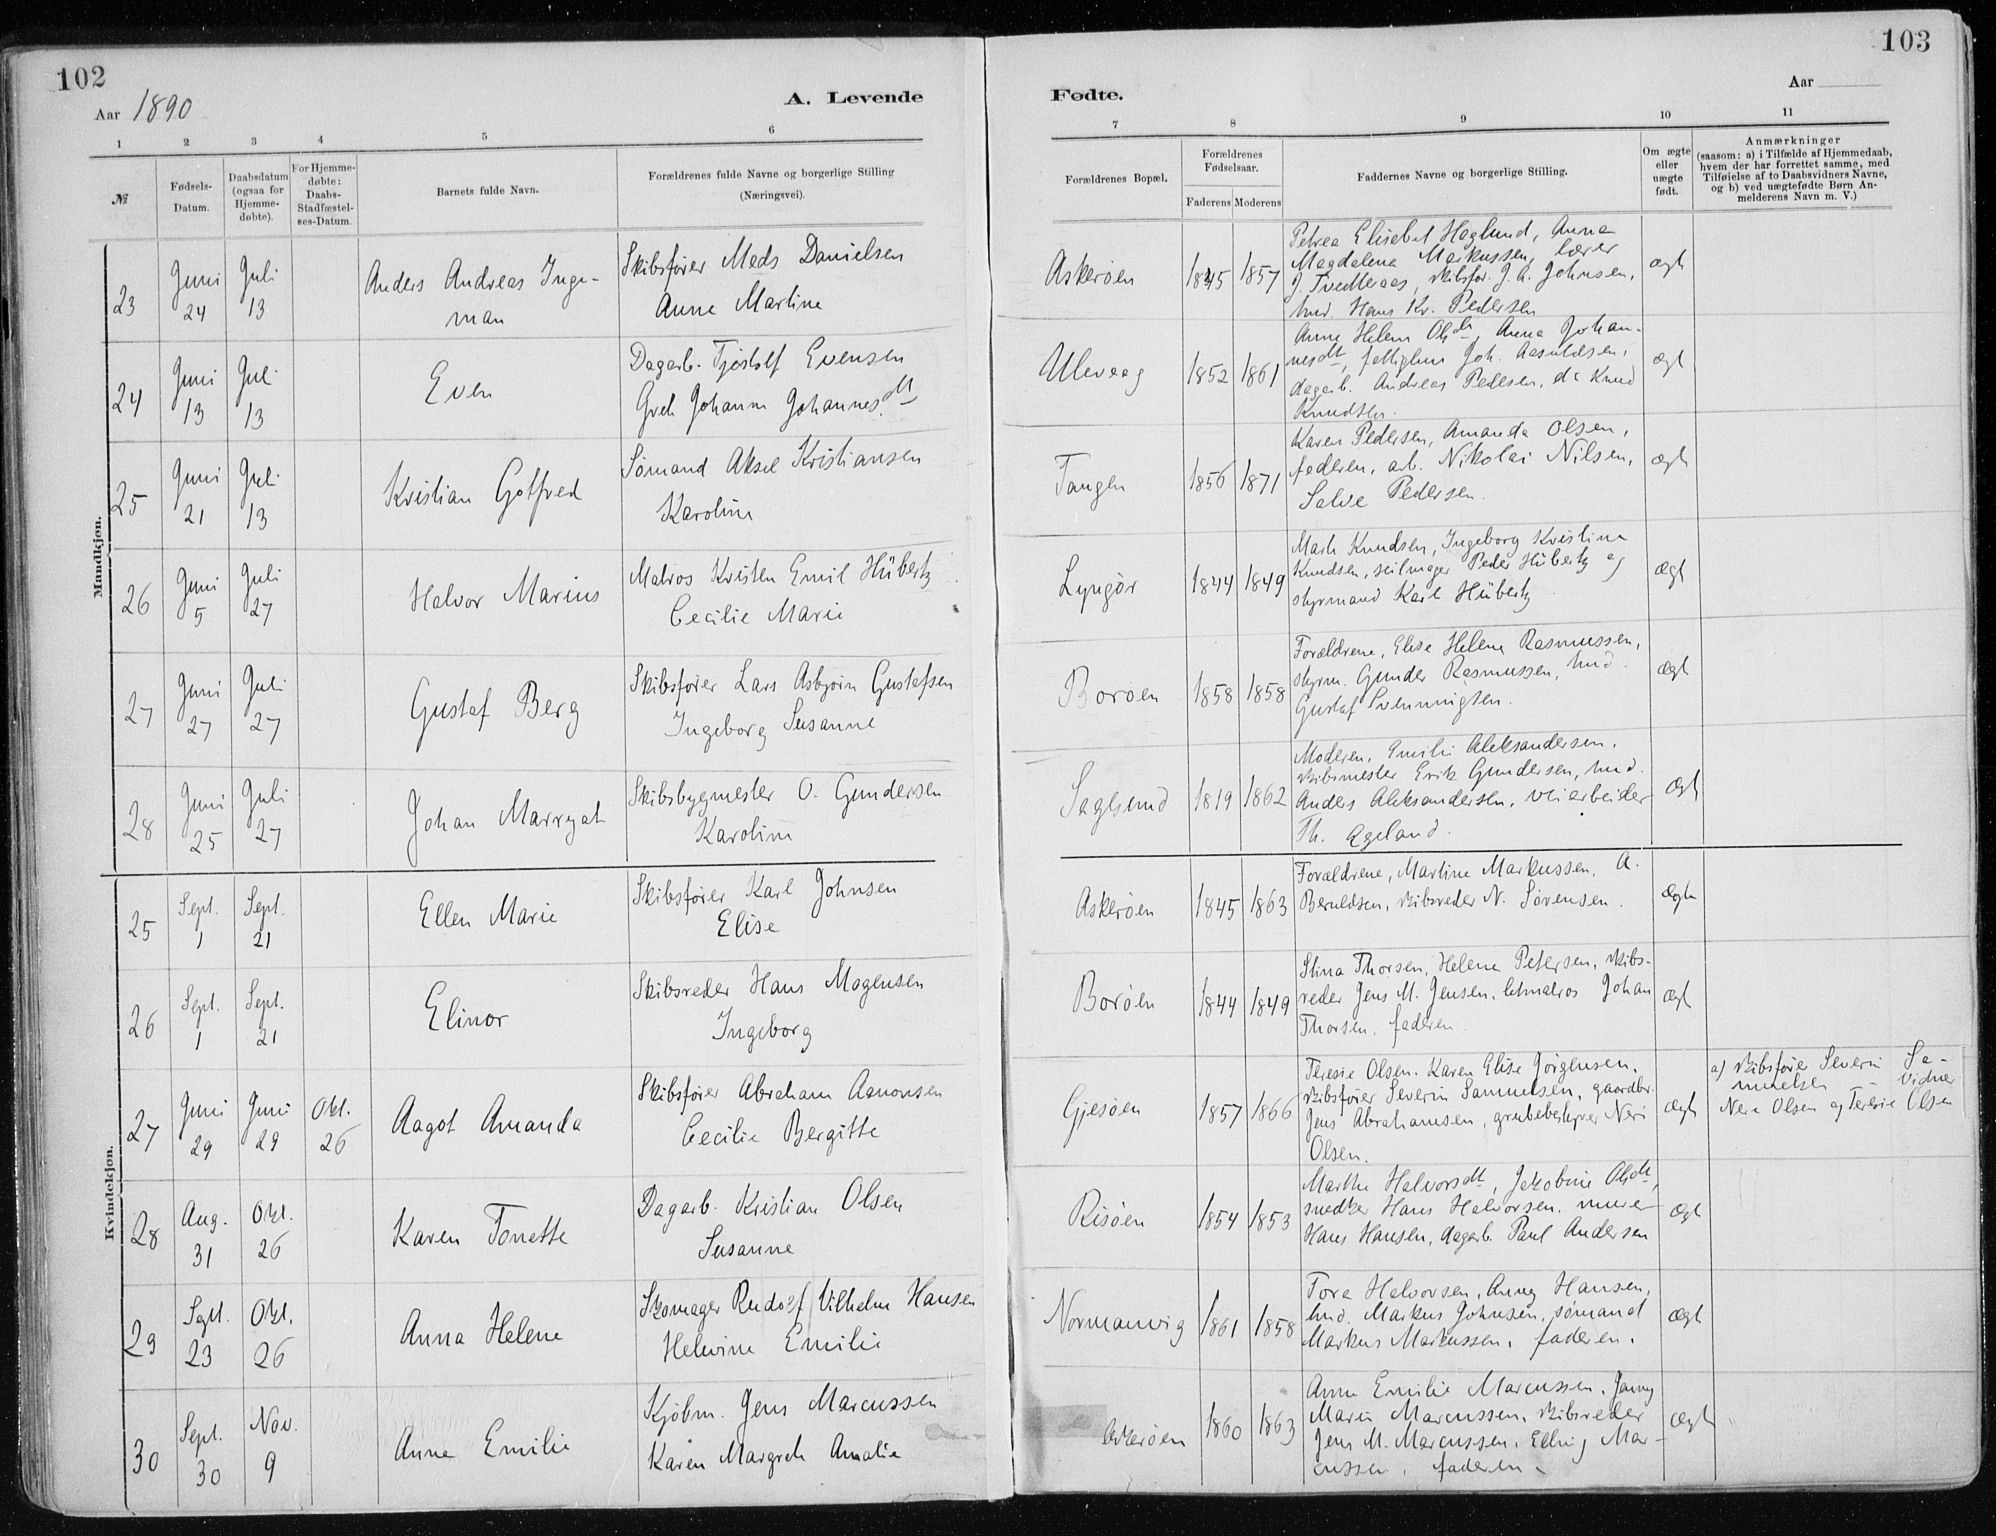 102
Aar 1890
A. Levende
1 2 3 4 5 6
№
Fødsels-Datum.
Daabsdatum (ogsaa for Hjemme-døbte).
For Hjemme-døbte: Daabs-Stadfæstel-ses-Datum.
Barnets fulde Navn.
Forældrenes fulde Navne og borgerlige Stilling
(Næringsvei).
Mandkjøn.
23 Juni 24 Juli 13 Anders Andreas Inge-
man
Skibsfører Mads Danielsen
Anne Martine
24 Juni 13 Jul. 13 Even
Dagarb. Tjøstolf Evensen
Greth Johanne Johannesdtt
25 Juni 21 Juli 13 Kristian Gotfred
Sømand Aksel Kristiansen
Karoline
26 Juni 5 Juli 27 Halvor Marius
Matros Kristen Emil Hübertz
Cecilie Marie
27 Juni 27 Juli 27 Gustaf Berg
Skibsfører Lars Asbjørn Gustafsen
Ingeborg Susanne
28 Juni 25 Juli 27 Johan Marryat
Skibsbygmester O. Gundersen
Karoline
Kvindekjøn.
25 Sept. 1 Sept. 21 Ellen Marie
Skibsfører Karl Johnsen
Elise
26 Sept. 1 Sept. 21 Elinor
Skibsreder Hans Mogensen
Ingeborg
27 Juni 29 Juni 29 Okt. 26 Aagot Amanda
Skibsfører Abraham Aanonsen
Cecilie Bergitte
28 Aug. 31 Okt. 26 Karen Tonette
Dagarb. Kristian Olsen
Susanne
29 Sept. 23 Okt. 26 Anna Helene
Skomager Rudolf Vilhelm Hansen
Helvine Emilie
30 Sept. 30 Nov. 9 Anne Emilie
Kjøbm. Jens Marcussen
Karen Margreth Amalie
103
Fødte.
Aar
7 8 9 10 11
Forældrenes Bopæl.
Forældrenes Fødselsaar.
Faderens Moderens
Faddernes Navne og borgerlige Stilling.
Om ægte eller uægte født.
Anmærkninger
(saasom: a) i Tilfælde af Hjemmedaab,
hvem der har forrettet samme, med
Tilføielse af to Daabsvidners Navne,
og b) ved uægtefødte Børn An-
melderens Navn m. V.)
Askerøen 1845 1857 ægt
Petrea Elisabet Haglund, Anna
Magdalena Markussen, lærer
J. Tvedteraas, skibsfør. J. A. Johnsen,
Hans Kr. Pedersen
Ulevaag 1852 1861 ægt
Anne Helene Olsdtr, Anna Johan-
nesdtt, Joh. Aasuldsen,
dagarb. Andreas Pedersen, do Knud
Knudsen.
Tangen 1856 1871 ægt
Karen Pedersen, Amanda Olsen,
faderen, arb. Nikolai Nilsen,
Salve Pedersen.
Lyngør 1844 1849 ægt
Marth Knudsen, Ingeborg Kristine
Knudsen, seilmager Peder Hübertz og
styrmand Karl Hübertz
Borøen 1858 1858 ægt
Forældrene, Elise Helene Rasmussen,
styrm. Gunder Rasmussen,
Gustaf Svenningsen.
Saglsund 1819 1862 ægt
Moderen, Emilie Aleksandersen,
skibsmester Erik Gundersen,
Anders Aleksandersen, veiarbeider
Th. Ageland.
Askerøen 1845 1863 ægte
Forældrene, Martine Markussen, A.
Beruldsen, skibsreder N. Sørensen.
Borøen 1844 1849 ægt
Stina Thorsen, Helena Petersen, skibs-
reder Jens M. Jensen, letmatros Johan
Thorsen, faderen
Gjesøen 1857 1866 ægt
Teresie Olsen, Karen Elise Jørgensen,
skibsfører Severin Samuelsen, gaardbr.
Jens Abrahamsen, grubebestyrer Neri
Olsen.
a) Skibsfører Severin Sa-
muelsen - Vidner
Neri Olsen og Teresie Olsen
Risøen 1854 1853 ægt
Marthe Halvorsdtt, Jakobine Olsdtt,
snedker Hans Halvorsen, murer
Hans Hansen, dagarb. Paul Andersen
Normanvig 1861 1858 ægt
Tora Halvorsen, Anny Hansen,
Markus Johnsen, sømand
Markus Markussen, faderen.
Askerøen 1860 1863 ægt
Anne Emilie Marcussen, Janny
Marie Marcussen, skibsreder
Jens M. Marcussen, Elling Mar-
cussen, faderen.